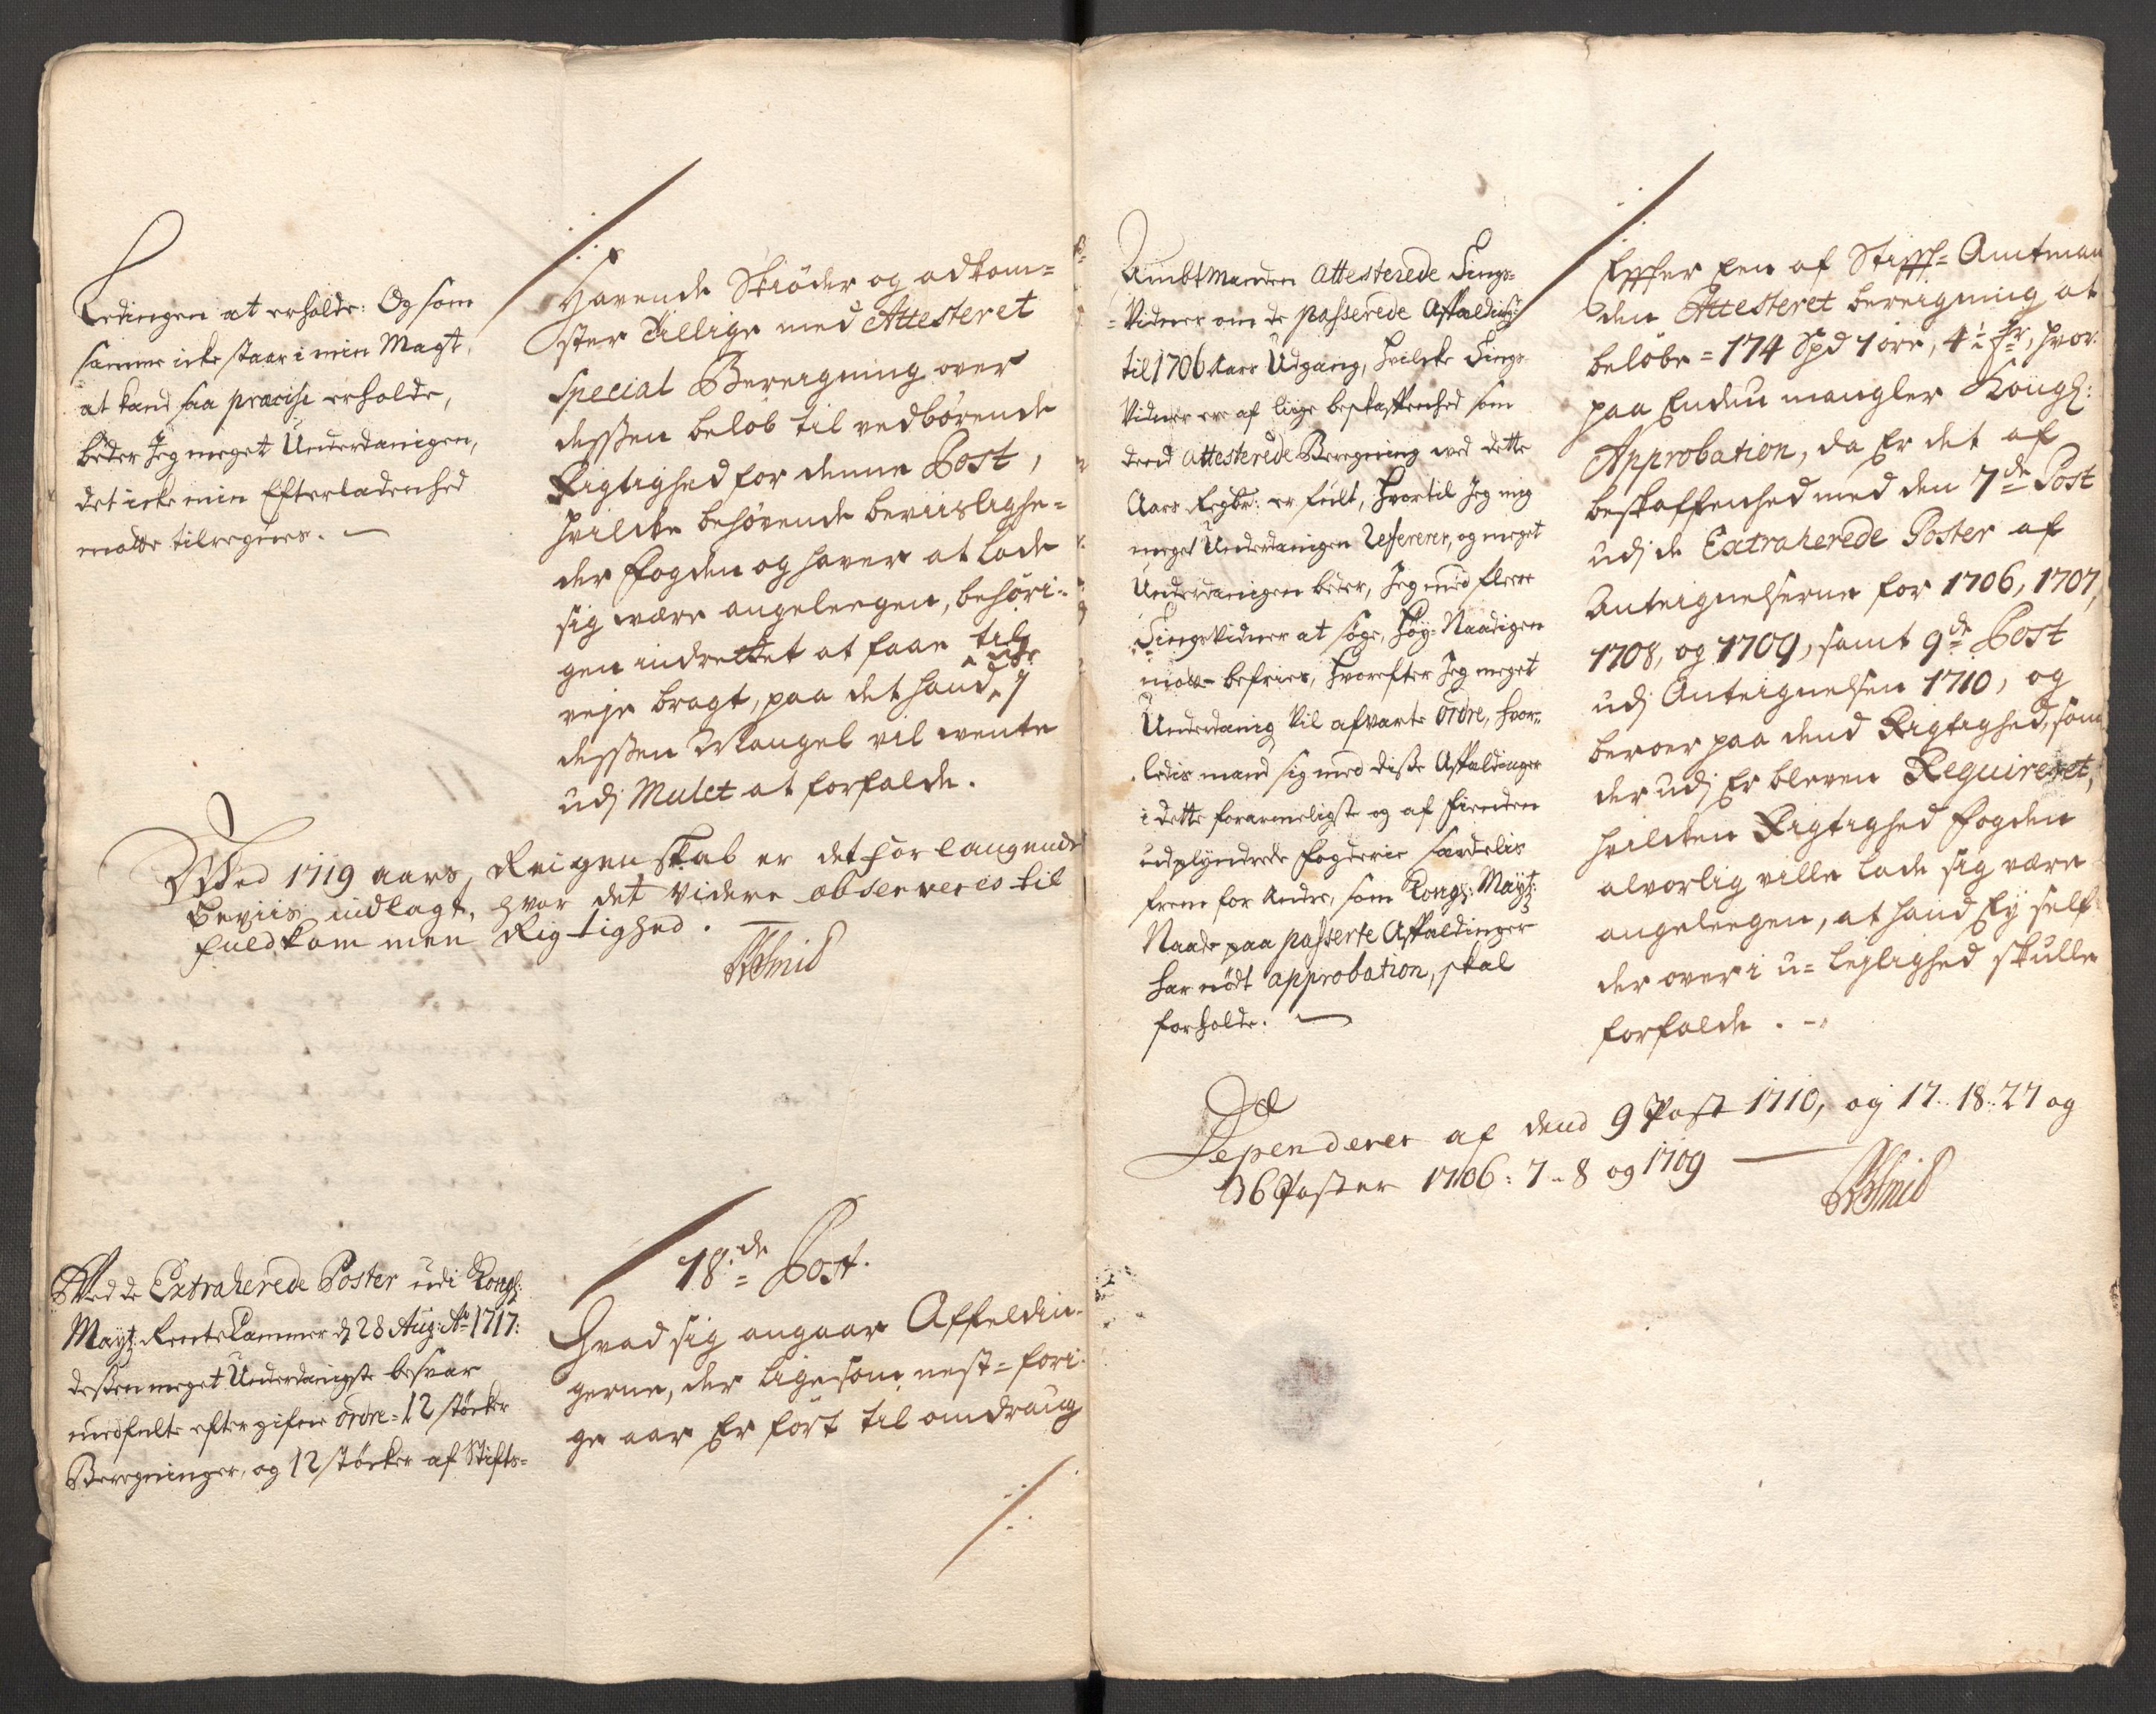 Ledingen at erholde: Og som
samme icke staar i min Magt,
at kand saa præcise erholde,
beder Jeg meget Underdanigen,
det icke min Efterladenhed
motte tilregnes.
Havende Skiøder og adkom-
ster Tillige med Attesteret
Special Bereigning over
dessen beløb til vedbørende
Rigtighed for denne Post,
hvilcke behørende beviislighe-
der Fogden og haver at lade
sig være angelegen, behøri-
gen indrettet at faae til
veje bragt, paa det hand
dessen Mangel vil vente
udj Mulct at forfalde.
Wed 1719 aars, Reigenskab er det forlangende
beviis indlagt, hvor det videre observeres til
fuldkommen Rigtighed.
Wed de Extraherede Poster udi Kongl:
Mayt: Rente Cammer d 28 Aug: Ao 1717:
dessen meget Underdanigste besvar
medfulte efter gifne ordre = 12 støcker
Beregninger, og 12 støcker af Stifts-
18de Post.
Hvad sig angaar Affeldin-
gerne, der ligesom nest-fori-
ge aar Er ført til omdrag
Ambtmanden attesterede Tings-
Vidner om de passerede Affelding:
til 1706 Aars Udgang, hvilcke Tings-
Vidner ere af liige beskaffenhed som
dend attesterede Beregning ved dette
Aars Regsk: er fuldt, hvortil Jeg mig
meget Underdanigen Refererer, og meget
Underdanigen beder, Jeg med fleere
Tingsvidner at søge, høy-Naadigen
motte befries, hvorefter Jeg meget
Underdanig vil afvarte ordre, hvor-
ledis mand sig med disse Affeldinger
i dette forarmeligste og af fienden
udplyndrede fogderie særdelis
frem for Andre, som Kongl: Mayt:
Naade paa passerte Affeldinger
har nødt approbation, skal
forholde.
Effter Een af Stifft-Amtman
den Attesteret bereigning at
beløbe = 174 Spd 1 øre, 4½ , hvor
paa Endnu mangler Kongl:
Approbation, da Er det af
beskaffenhed med den 7de Post
udj de Extraherede Poster af
Anteignelserne for 1706, 1707,
1708, og 1709, samt 9de Post
udj Anteignelsen 1710, og
beroer paa dend Rigtighed, som
der udj Er bleven Requireret,
hvilcken Rigtighed fogden
alvorlig ville lade sig være
angeleegen, at hand Ey self
der over i u-lejlighed skulle
forfalde.
Dependerer af dend 9 Post 1710, og 17. 18. 27 og
36 Poster 1706: 7 - 8 og 1709